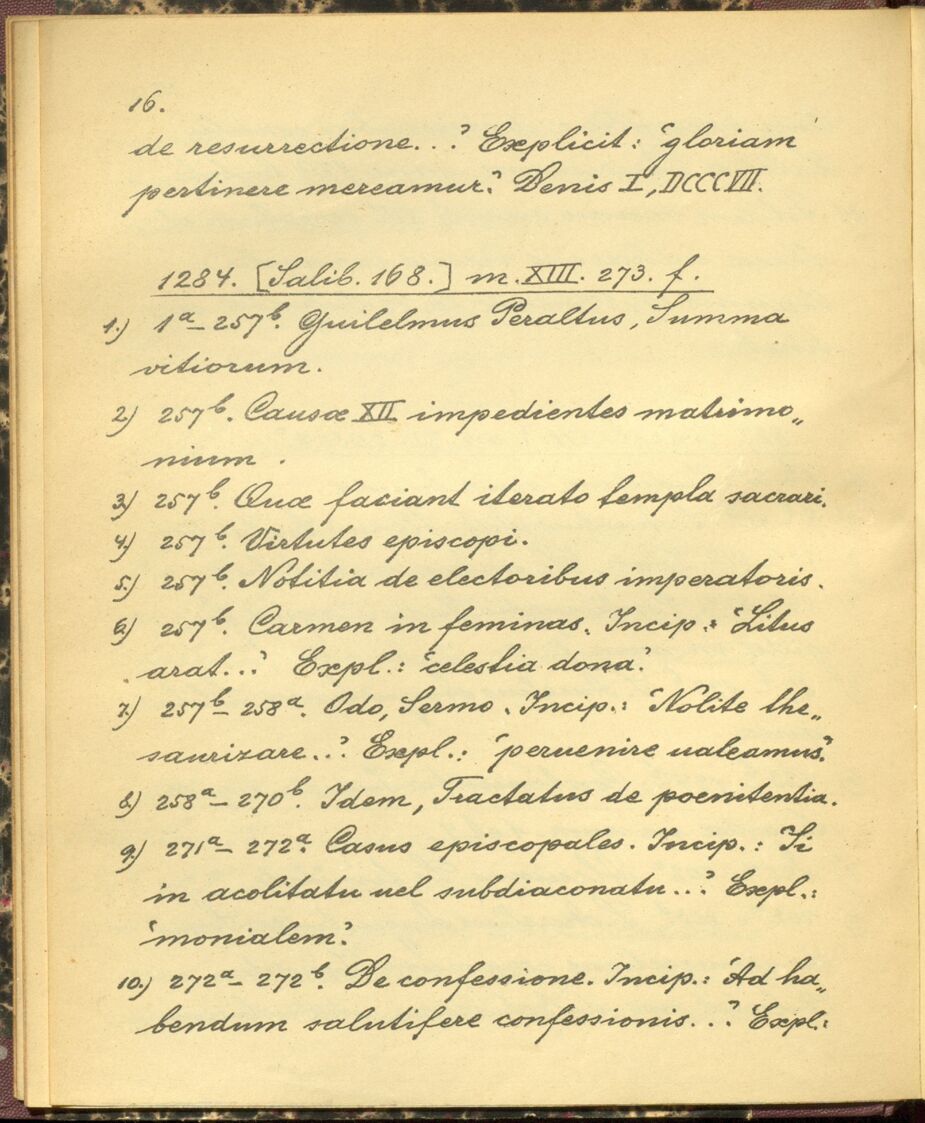 16.
de resurrectione...’ Explicit: ‘gloriam
pertinere mereamur.’ Denis I, DCCCVII.
1284. [Salib. 168.] m. XIII. 273. f.
1.) 1ᵃ–257ᵇ. Guilelmus Peraltus, Summa
vitiorum.
2.) 257ᵇ. Causæ XII impedientes matrimo„
nium.
3.) 257ᵇ. Quæ faciant iterato templa sacrari.
4.) 257ᵇ. Virtutes episcopi.
5.) 257ᵇ. Notitia de electoribus imperatoris.
6.) 257ᵇ. Carmen in feminas. Incip.: ‘Litus
arat...’ Expl.: ‘celestia dona.’
7.) 257ᵇ–258ᵃ. Odo, Sermo. Incip.: ‘Nolite the„
saurizare...’ Expl.: ‘peruenire ualeamus.’
8.) 258ᵃ–270ᵇ. Idem, Tractatus de poenitentia.
9.) 271ᵃ–272ᵃ. Casus episcopales. Incip.: ‘Si
in acolitatu uel subdiaconatu...’ Expl.:
‘monialem.’
10.) 272ᵃ–272ᵇ. De confessione. Incip.: ‘Ad ha„
bendum salutifere confessionis...’ Expl.: